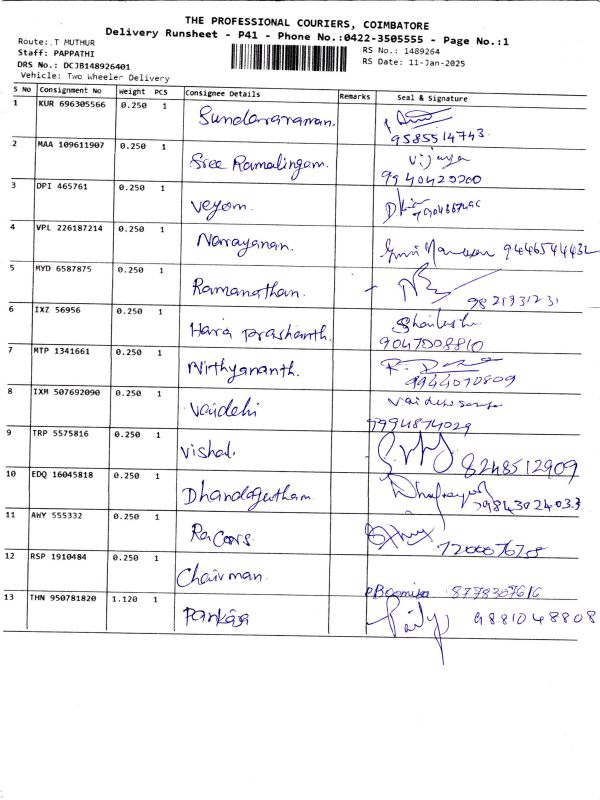 THE PROFESSIONAL COURIERS, COIMBATORE
Delivery Runsheet - P41 - Phone No.:0422-3505555 - Page No.:1
Route:.T MUTHUR
RS No.: 1489264
Staff: PAPPATHI
RS Date: 11-Jan-2025
DRS No.: DCJB148926401
Vehicle: Two Wheeler Delivery
S No Consignment No Weight PCS Consignee Details Remarks Seal & Signature
1 KUR 696305566 0.250 1 Sundararaman.
9585514743
2 MAA 109611907 0.250 1 Sree Ramalingam. Vijaya
9940420200
3 DPI 465761 0.250 1 Veyom.
4 VPL 226187214 0.250 1 Narayanan. 9446544432
5 MYD 6587875 0.250 1 Ramanathan.
9821931231
6 IXZ 56956 0.250 1 Hara prashanth.
9047008810
7 MTP 1341661 0.250 1 Nirthyananth.
9944070809
8 IXM 507692090 0.250 1 Vaidehi
9994874029
9 TRP 5575816 0.250 1 Vishal.
8248512909
10 EDQ 16045818 0.250 1
9843024033
11 AWY 555332 0.250 1
12 RSP 1910484 0.250 1 Chairman.
8778307616
13 THN 950781820 1.120 1 Pankaja
9881048808